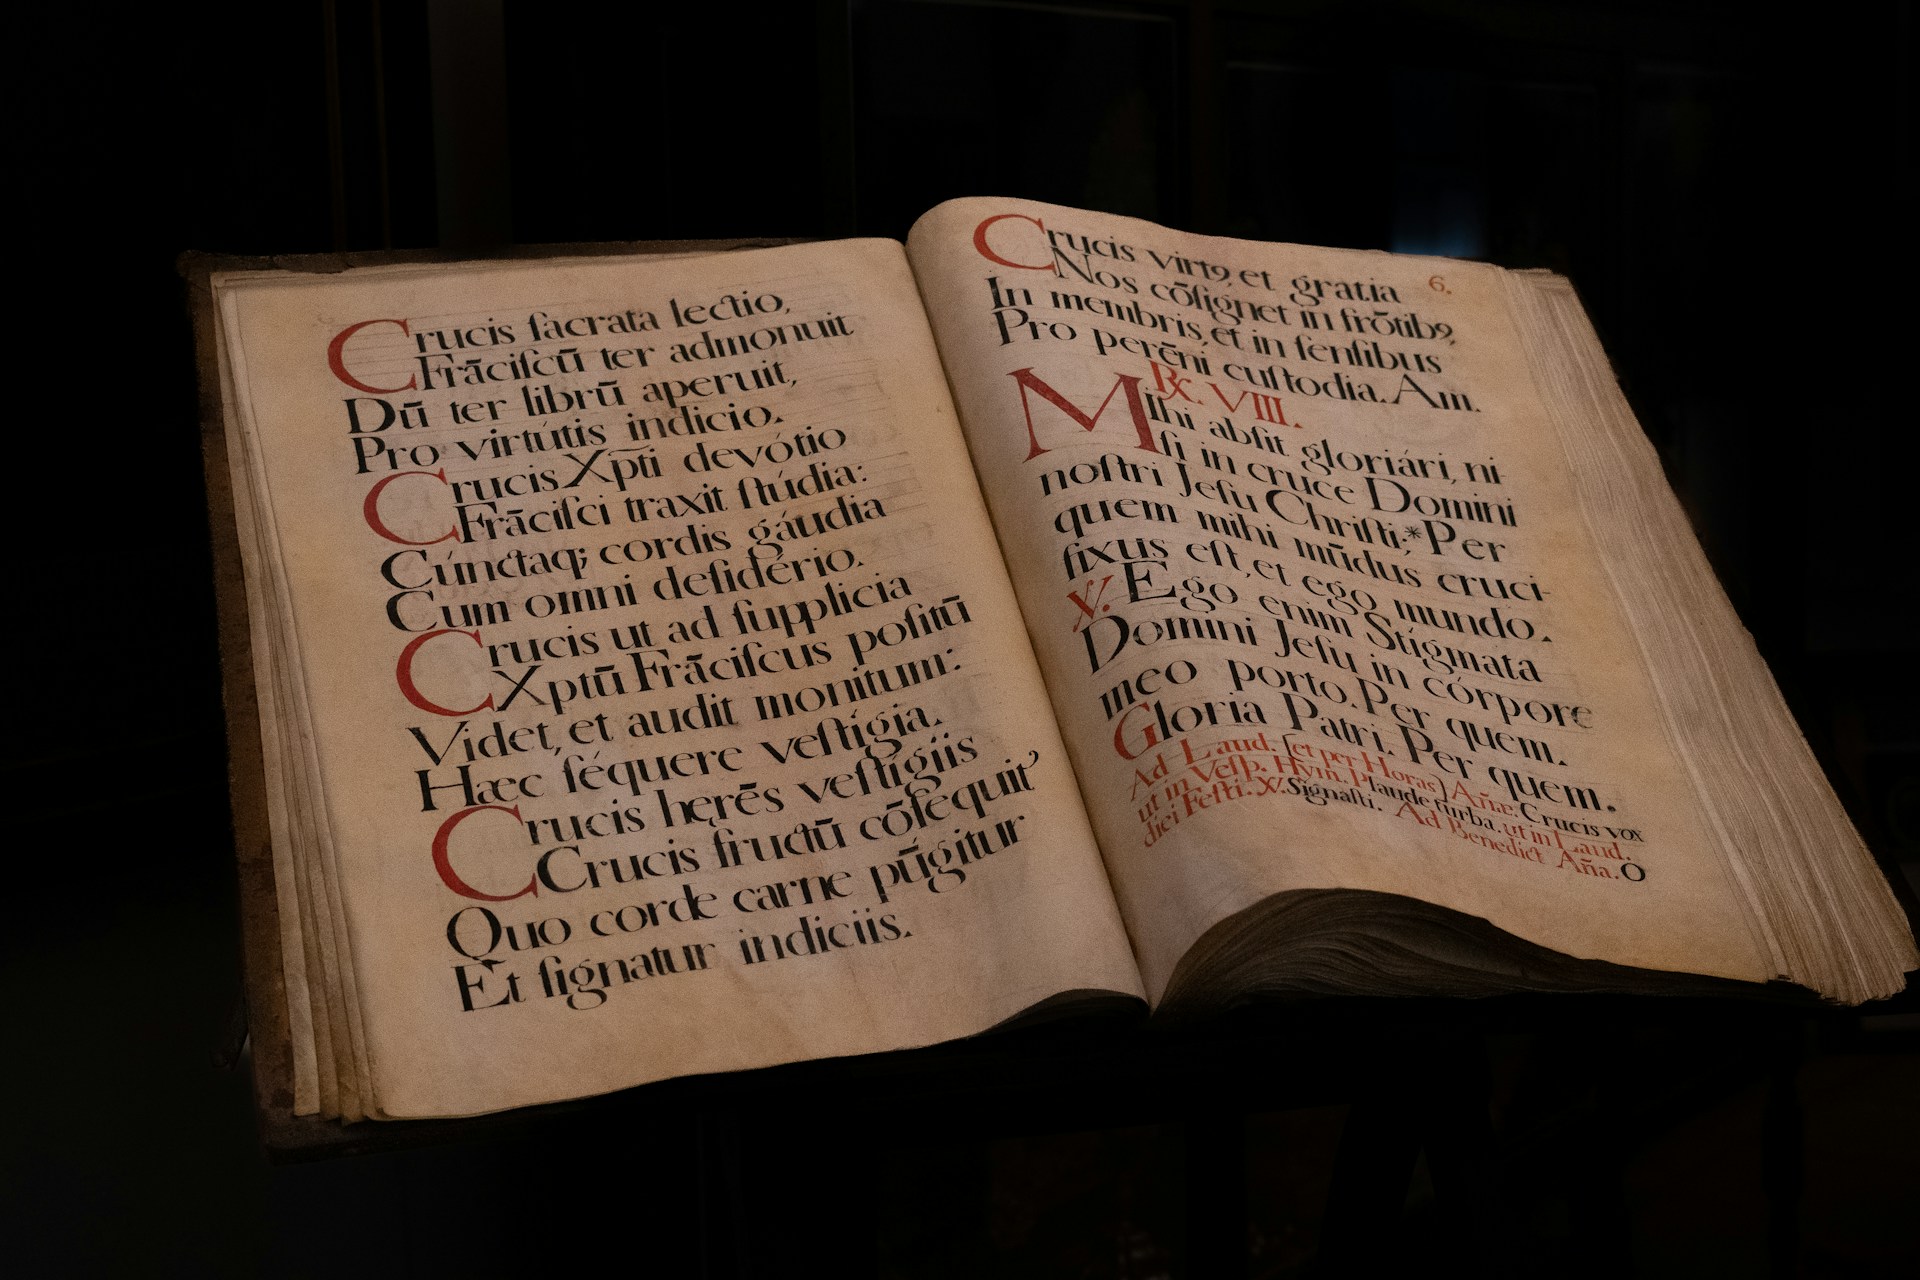 Crucis ſacrata lectio,
Frāciſcū ter admonuit
Dū ter librū aperuit,
Pro virtútis indicio.
Crucis Xp̄ti devótio
Frāciſci traxit ſtúdia:
Cúnctaq; cordis gáudia
Cum omni deſidério.
Crucis ut ad ſupplicia
Xptū Frāciſcus poſitū
Videt, et audit monitum:
Hæc ſéquere veſtígia.
Crucis hęrēs veſtígiis
Crucis fructū cōſequit᾿
Quo corde carne pūgitur
Et ſignatur indiciis.
6.
Crucis virtꝰ, et gratia
Nos cōſignet in frōtibꝰ,
In membris, et in ſenſibus
Pro perēni cuſtodia. Am.
℞. VIII.
MIhi abſit gloriári, ni-
ſi in cruce Domini
noſtri Jeſu Chriſti; * Per
quem mihi mūdus cruci-
fixus eſt, et ego mundo.
℣. Ego enim Stígmata
Domini Jeſu in córpore
meo porto. Per quem.
Gloria Patri. Per quem.
Ad Laud. (et per Horas) Añæ: Crucis vox
ut in Veſp. Hym. Plaude turba. ut in Laud.
diei Feſti. ℣. Signaſti. Ad Benedict Aña. O